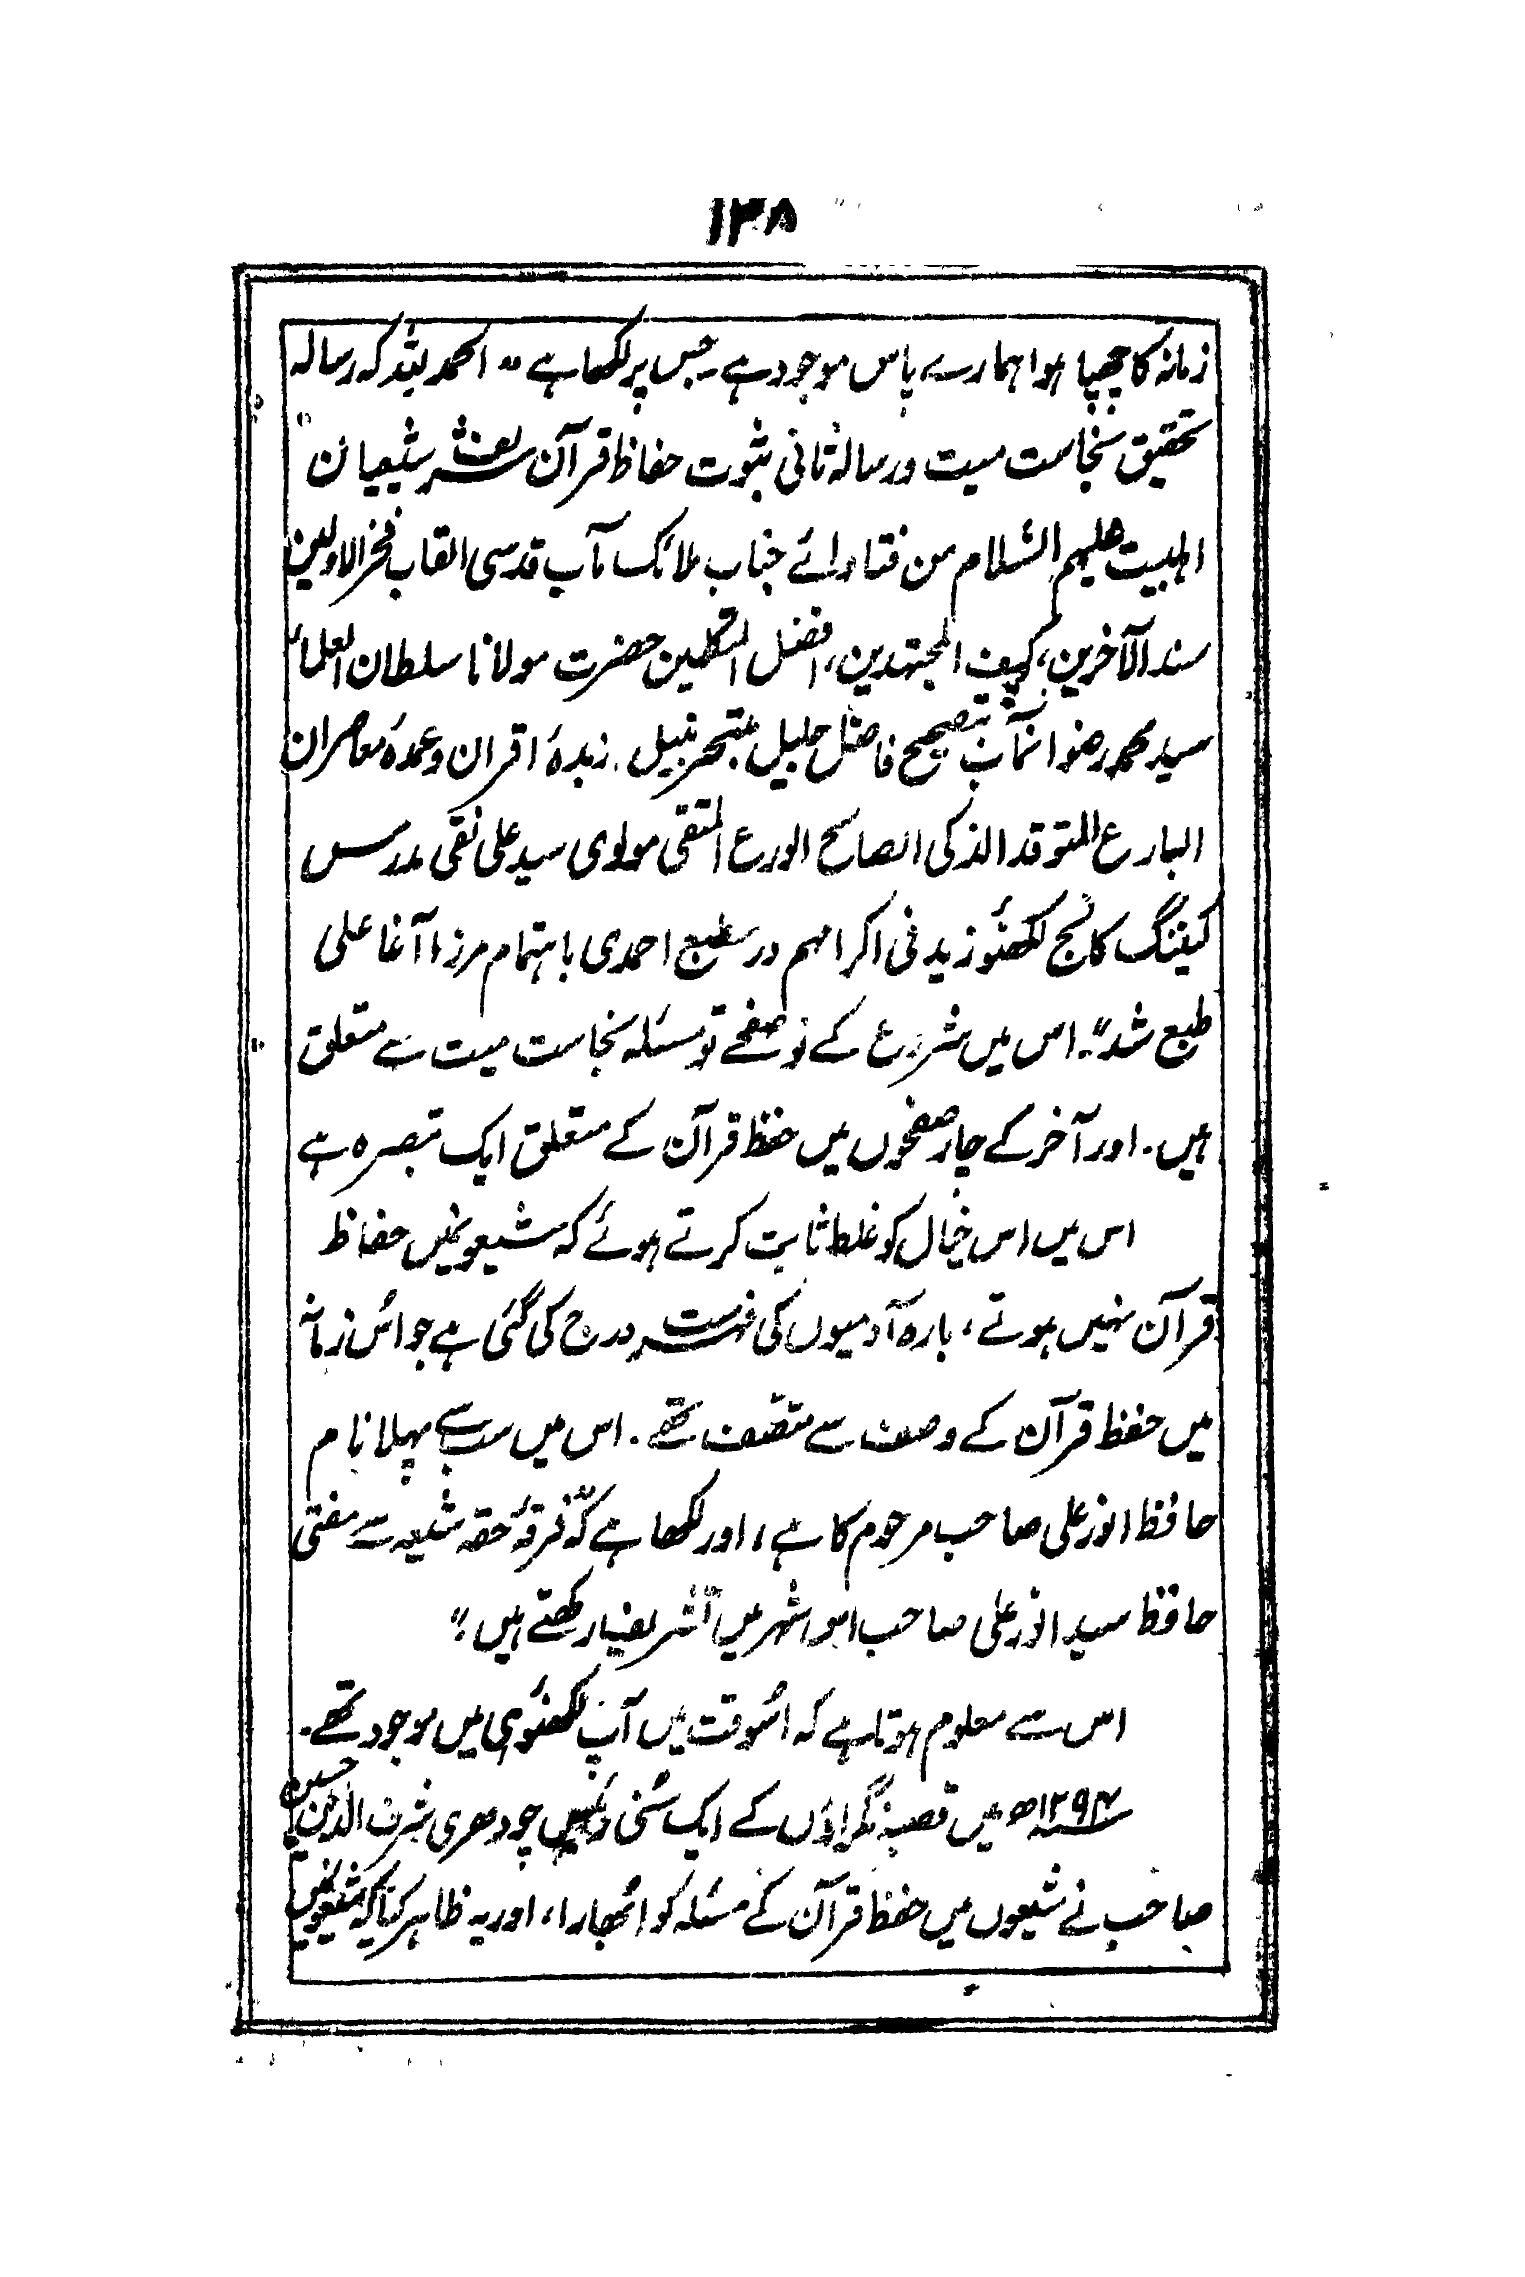 ۱۳۸
زمانہ کا چھپا ہوا ہمارے پاس موجود ہے۔ جس پر لکھا ہے "الحمد للہ کہ رسالہ
تحقیق نجاست میت و رسالہ ثانی ثبوت حفاظ قرآن شیعیان
اہلبیت علیہم السّلام من فتاوائے جناب ملائک مآب قدسی القاب فخر الاولین
سند الآخرین، کہف المجتہدین، افضل المتکلمین حضرت مولانا سلطان العلماء
سید محمد رضوانمآب بتصحیح فاضل جلیل متبحر نبیل۔ زبدۂ اقران و عمدۂ معاصران
البارع المتوقد الذکی الصالح الورع المتقی مولوی سید علی نقی مدرس
کیننگ کالج لکھنؤ زید فی اکرامہم در مطبع احمدی باہتمام مرزا آغا علی
طبع شد"۔ اس میں شروع کے نو صفحے تو مسئلہ نجاست میت سے متعلق
ہیں۔ اور آخر کے چار صفحوں میں حفظ قرآن کے متعلق ایک تبصرہ ہے
اس میں اس خیال کو غلط ثابت کرتے ہوئے کہ شیعونمیں حفاظ
قرآن نہیں ہوتے، بارہ آدمیوں کی فہرست درج کی گئی ہے جو اُس زمانہ
میں حفظ قرآن کے وصف سے متصّف تھے۔ اس میں سب سے پہلا نام
حافظ انور علی صاحب مرحوم کا ہے، اور لکھا ہے کہ "فرقۂ حقہ شیعہ سے مفتی
حافظ سید انور علی صاحب اس شہر میں تشریف رکھتے ہیں"
اس سے معلوم ہوتا ہے کہ اُسوقت میں آپ لکھنؤ ہی میں موجود تھے۔
میں قصبہ نگراؤں کے ایک سُنی رئیس چودھری شرف الدین حسین
صاحب نے شیعوں میں حفظ قرآن کے مسئلہ کو اُبھارا، اور یہ ظاہر کیا کہ شیعونمیں